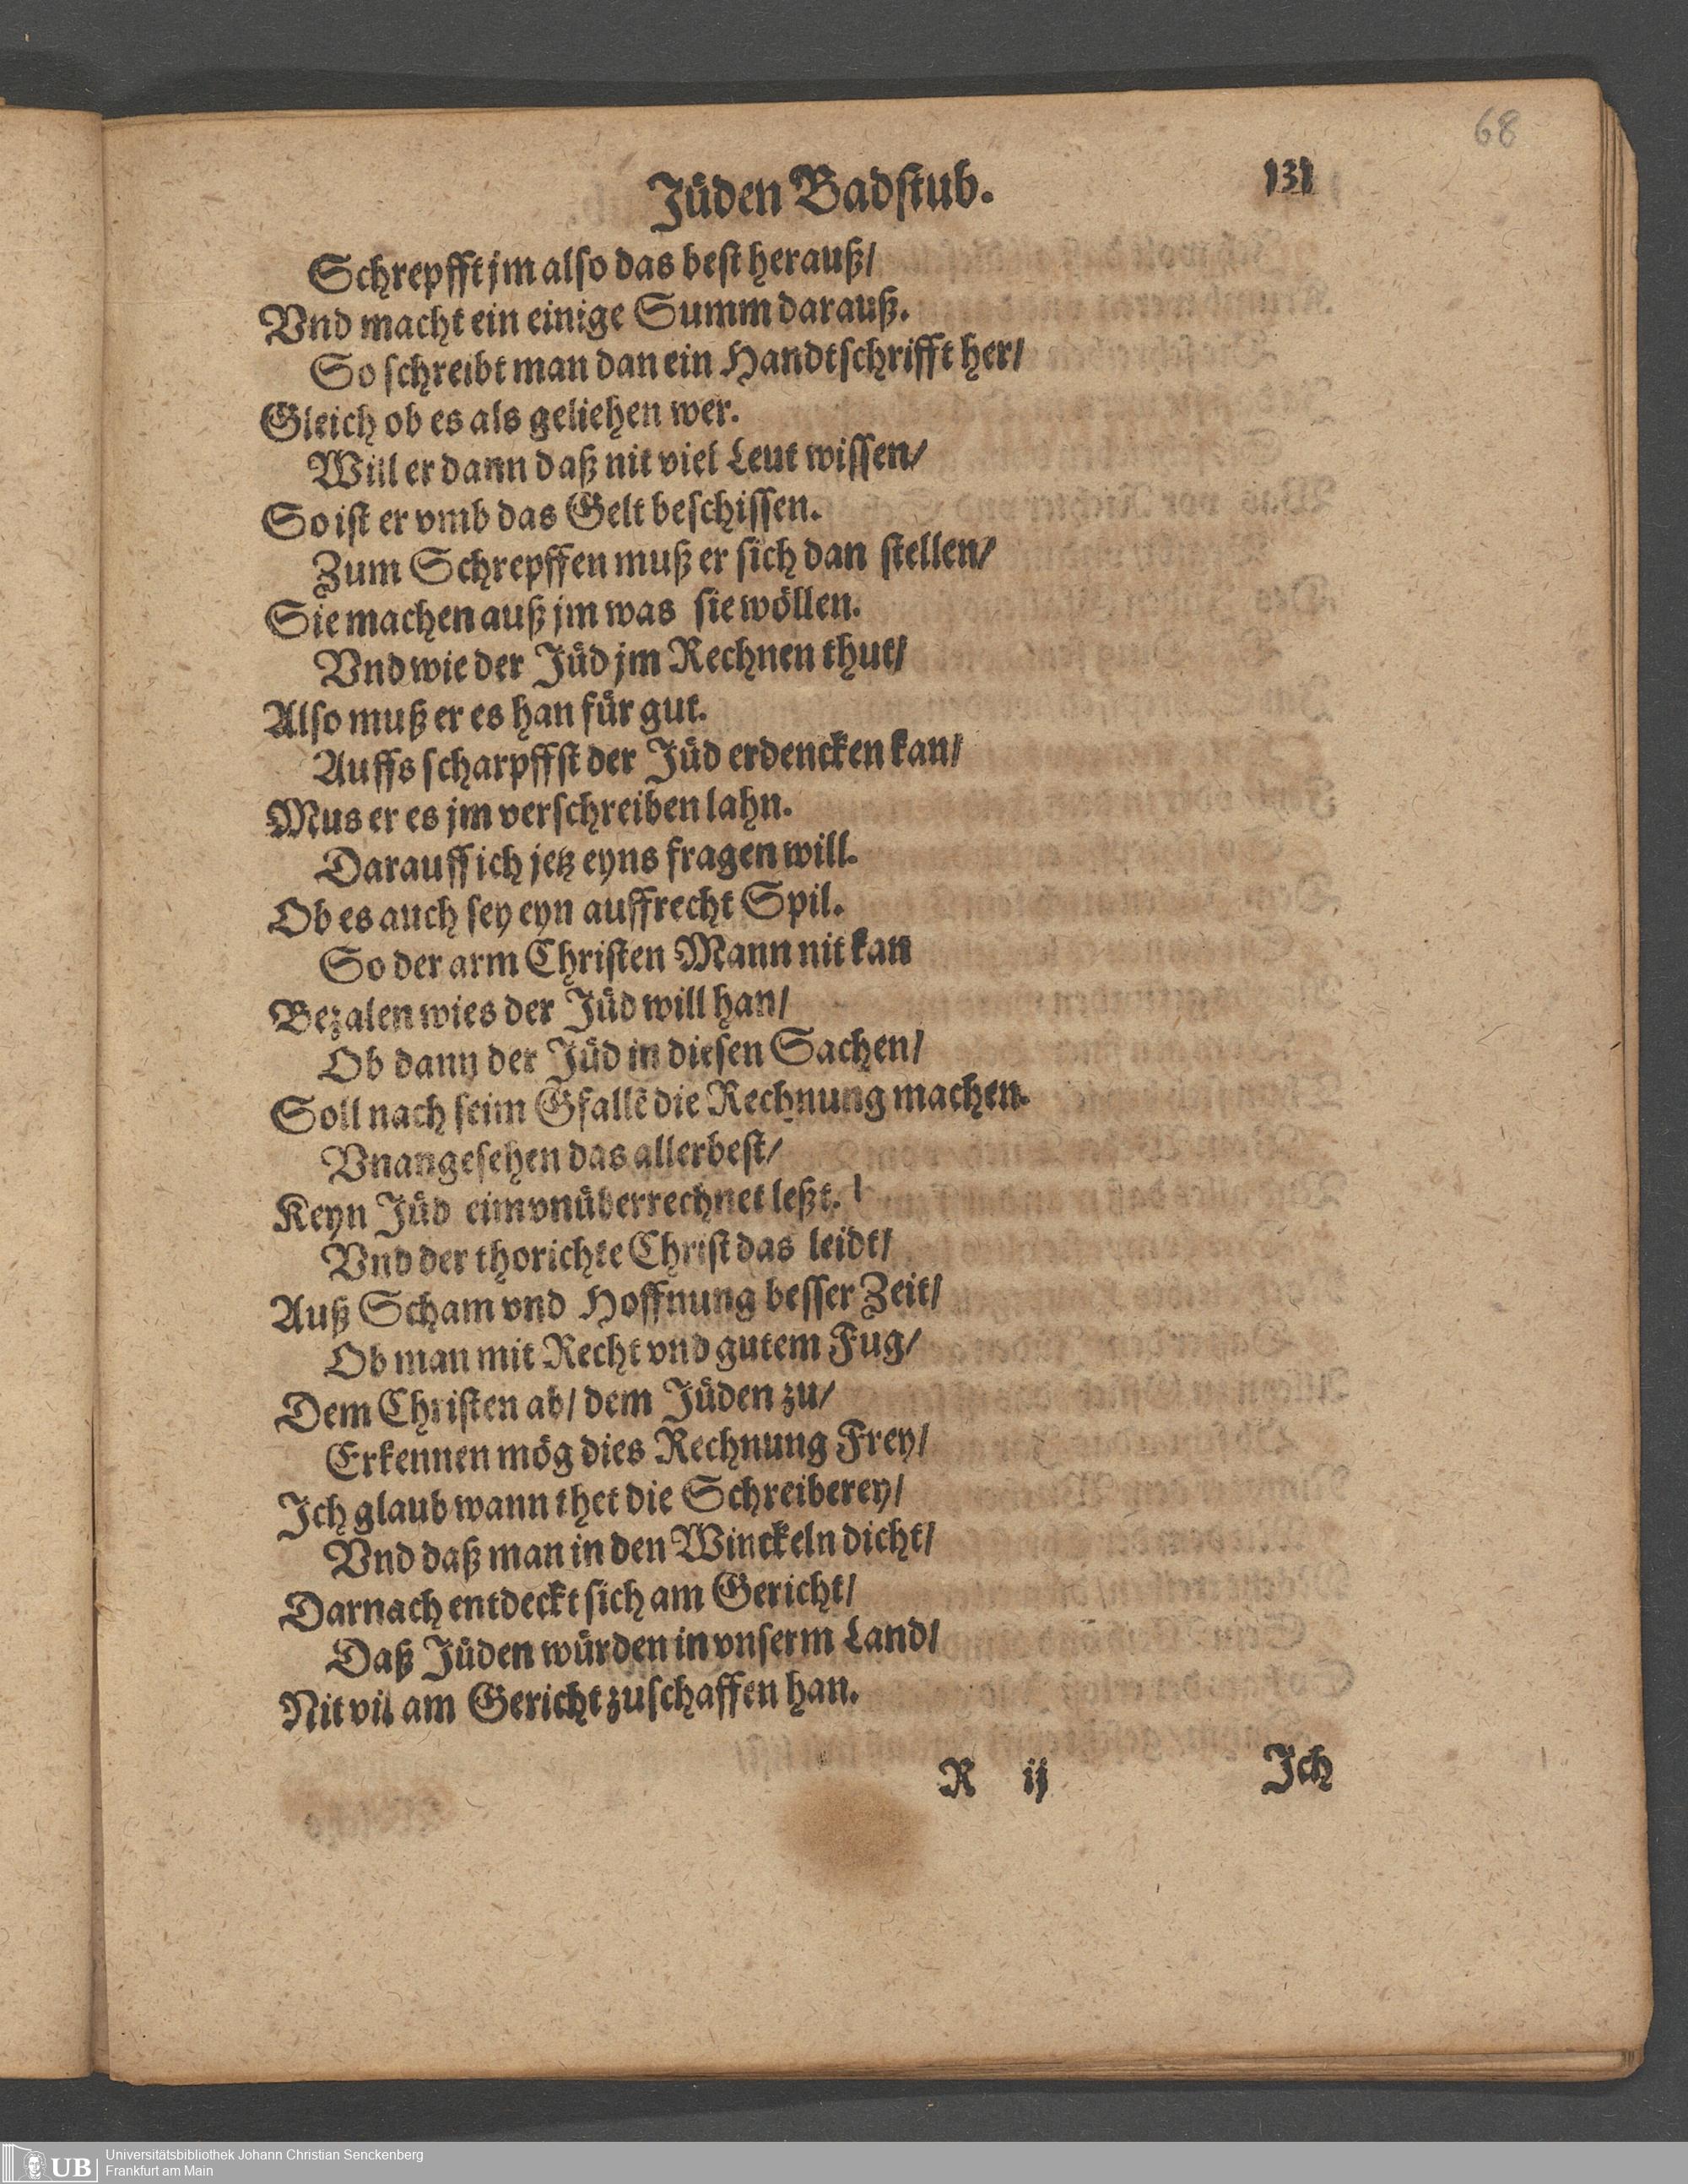 68
Jüden Badstub. 131
Schrepfft jm also das best herauß/
Vnd macht ein einige Summ darauß.
So schreibt man dan ein Handtschrifft her/
Gleich ob es als geliehen wer.
Will er dann daß nit viel Leut wissen/
So ist er vmb das Gelt beschissen.
Zum Schrepffen muß er sich dan stellen/
Sie machen auß jm was sie wöllen.
Vnd wie der Jüd jm Rechnen thut/
Also muß er es han für gut.
Auffs scharpffst der Jüd erdencken kan/
Mus er es jm verschreiben lahn.
Darauff ich jetz eyns fragen will.
Ob es auch sey eyn auffrecht Spil.
So der arm Christen Mann nit kan
Bezalen wies der Jüd will han/
Ob dann der Jüd in diesen Sachen/
Soll nach seim Gfallẽ die Rechnung machen.
Vnangesehen das allerbest/
Keyn Jüd eim vnüberrechnet leßt.
Vnd der thorichte Christ das leidt/
Auß Scham vnd Hoffnung besser Zeit/
Ob man mit Recht vnd gutem Fug/
Dem Christen ab/ dem Jüden zu/
Erkennen mög dies Rechnung Frey/
Ich glaub wann thet die Schreiberey/
Vnd daß man in den Winckeln dicht/
Darnach entdeckt sich am Gericht/
Daß Jüden würden in vnserm Land/
Nit vil am Gericht zuschaffen han.
R ij Ich
UB Universitätsbibliothek Johann Christian Senckenberg
Frankfurt am Main